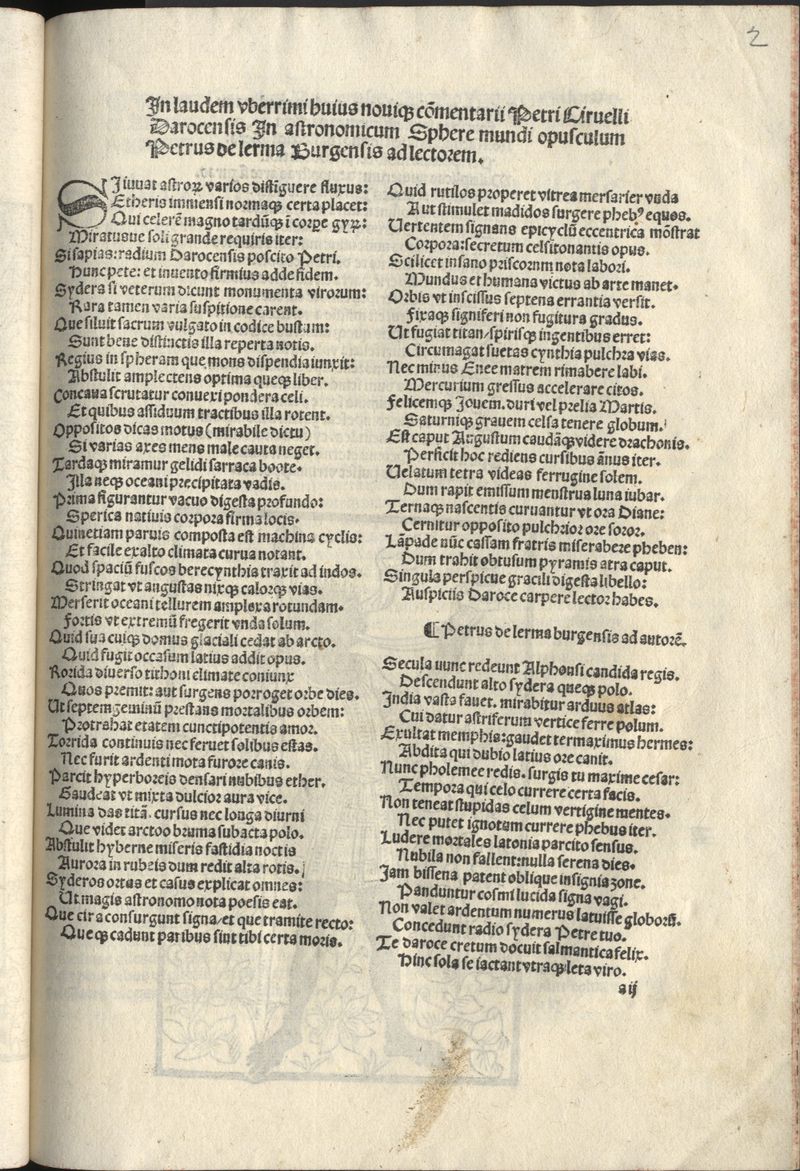 2
In laudem vberrimi huius nouiqꝫ cõmentarii Petri Ciruelli
Darocensis In astronomicum Sphere mundi opusculum
Petrus de lerma Burgensis ad lectorem.
SI iuuat astroꝝ varios distĩguere fluxus:
Etheris immensi normaqꝫ certa placet:
Qui celerẽ magno tardũqꝫ ĩ corꝑe gyꝝ:
Miratusue soli grande requiris iter:
Si sapias: radium Darocensis poscito Petri.
Hunc pete: et inuento firmius adde fidem.
Sydera si veterum dicunt monumenta virorum:
Rara tamen varia suspitione carent.
Que siluit sacrum vulgato in codice bustum:
Sunt bene distinctis illa reperta notis.
Regius in spheram que mons dispendia iunxit:
Abstulit amplectens optima queqꝫ liber.
Concaua scrutatur conuexi pondera celi.
Et quibus assiduum tractibus illa rotent.
Oppositos dicas motus (mirabile dictu)
Si varias axes mens male cauta neget.
Tardaqꝫ miramur gelidi sarraca boote.
Illa neqꝫ oceani precipitata vadis.
Prima figurantur vacuo digesta profundo:
Sperica natiuis corpora firma locis.
Quinetiam paruis composta est machina cyclis:
Et facile exalto climata curua notant.
Quod spaciũ fuscos berecynthia traxit ad indos.
Stringat vt angustas nixqꝫ calorqꝫ vias.
Merserit oceani tellurem amplexa rotundam.
Fortis vt extremũ fregerit vnda solum.
Quid sua cuiqꝫ domus glaciali cedat ab arcto.
Quid fugit occasum latius addit opus.
Rorida diuerso tithoni climate coniunx
Quos premit: aut surgens porroget orbe dies.
Ut septem geminũ prestans mortalibus orbem:
Protrahat etatem cunctipotentis amor.
Torrida continuis nec feruet solibus estas.
Nec furit ardenti mota furore canis.
Parcit hyperboreis densari nubibus ether.
Gaudeat vt mixta dulcior aura vice.
Lumina das titã. cursus nec longa diurni
Que videt arctoo bruma subacta polo.
Abstulit hyberne miseris fastidia noctis
Aurora in rubeis dum redit alta rotis.
Syderos ortus et casus explicat omnes:
Ut magis astronomo nota poesis eat.
Que cira consurgunt signa/et que tramite recto:
Que qꝫ cadunt paribus sint tibi certa moris.
Quid rutilos properet vitrea mersarier vnda
Aut stimulet madidos surgere phebꝰ equos.
Uertentem signans epicyclũ eccentrica mõstrat
Corpora: secretum celsitonantis opus.
Scilicet insano priscorum nota labori.
Mundus et humana victus ab arte manet.
Orbis vt inscissus septena errantia versit.
Fixaqꝫ signiferi non fugitura gradus.
Ut fugiat titan/spirisqꝫ ingentibus erret:
Circumagat suetas cynthia pulchra vias.
Nec minus Enee matrem rimabere labi.
Mercurium gressus accelerare citos.
Felicemqꝫ Jouem. duri vel prelia Martis.
Saturniqꝫ grauem celsa tenere globum.
Est caput Augustum caudãqꝫ videre drachonis.
Perficit hoc rediens cursibus ãnus iter.
Uelatum tetra videas ferrugine solem.
Dum rapit emissum menstrua luna iubar.
Ternaqꝫ nascentis curuantur vt ora Diane:
Cernitur opposito pulchrior ore soror.
Lãpade nũc cassam fratris miserabere pheben:
Dum trahit obtusum pyramis atra caput.
Singula perspicue gracili digesta libello:
Auspiciis Daroce carpere lector habes.
¶ Petrus de lerma burgensis ad autorẽ.
Secula nunc redeunt Alphonsi candida regis.
Descendunt alto sydera queqꝫ polo.
India vasta fauet. mirabitur arduus atlas:
Cui datur astriferum vertice ferre polum.
Exultat memphis: gaudet termaximus hermes:
Abdita qui dubio latius ore canit.
Nunc pholemee redis. surgis tu maxime cesar:
Tempora qui celo currere certa facis.
Non teneat stupidas celum vertigine mentes.
Nec putet ignotum currere phebus iter.
Ludere mortales latonia parcito sensus.
Nubila non fallent: nulla serena dies.
Jam bissena patent oblique insignia zone.
Panduntur cosmi lucida signa vagi.
Non valet ardentum numerus latuisse globorũ.
Concedunt radio sydera Petre tuo.
Te daroce cretum docuit salmantica felix.
Hinc sola se iactant vtraqꝫ leta viro.
a ij